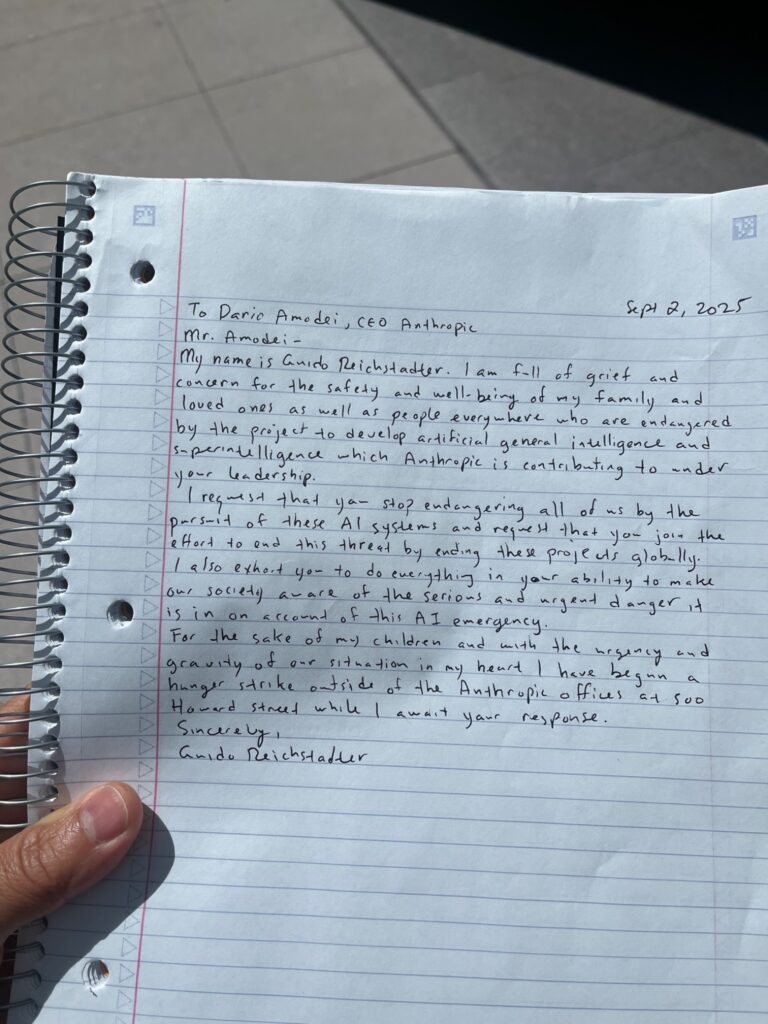 Sept 2, 2025
To Dario Amodei, CEO Anthropic
Mr. Amodei-
My name is Guido Reichstadter. I am full of grief and
concern for the safety and well-being of my family and
loved ones as well as people everywhere who are endangered
by the project to develop artificial general intelligence and
superintelligence which Anthropic is contributing to under
your leadership.
I request that you stop endangering all of us by the
pursuit of these AI systems and request that you join the
effort to end this threat by ending these projects globally.
I also exhort you to do everything in your ability to make
our society aware of the serious and urgent danger it
is in on account of this AI emergency.
For the sake of my children and with the urgency and
gravity of our situation in my heart I have begun a
hunger strike outside of the Anthropic offices at 500
Howard street while I await your response.
Sincerely,
Guido Reichstadter